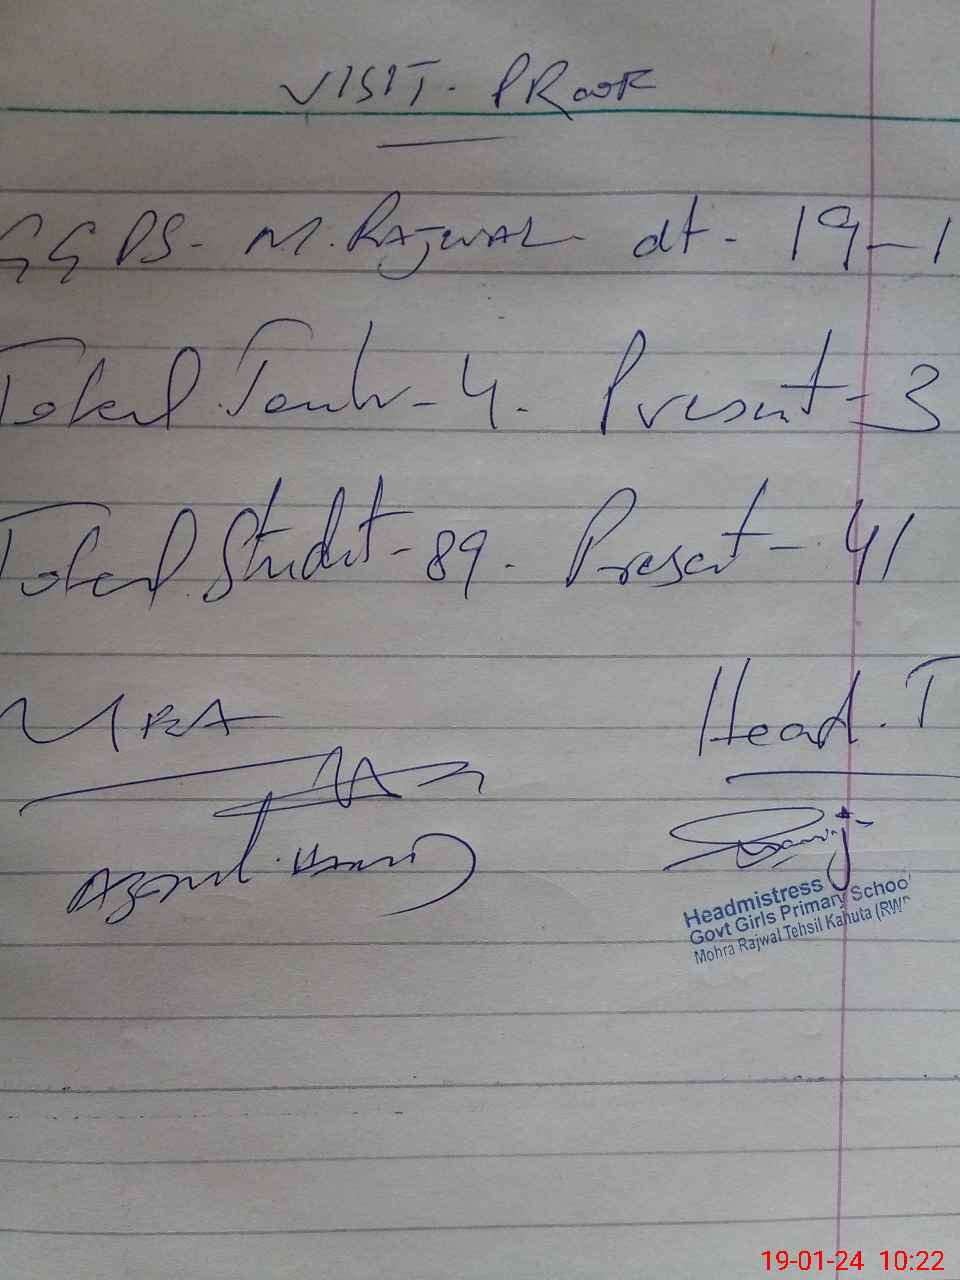 VISIT. PRooF
GGPS- M. RAJWAL dt - 19-1
Total - 4. Present - 3
Total Student - 89. Present - 41
Head. T
Headmistress
Govt Girls Primary School
Mohra Rajwal Tehsil Kahuta (RWP
19-01-24 10:22